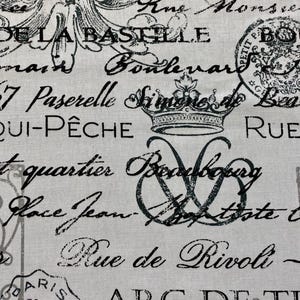 Rue Monsie
DE LA BASTILLE BO
main Boulevar
7 Paserelle Simone de Bea
QUI-PÊCHE RUE
t quartier Beaubourg
Place Jean-Baptiste C
Rue de Rivoli
PARIS
ARC DE T